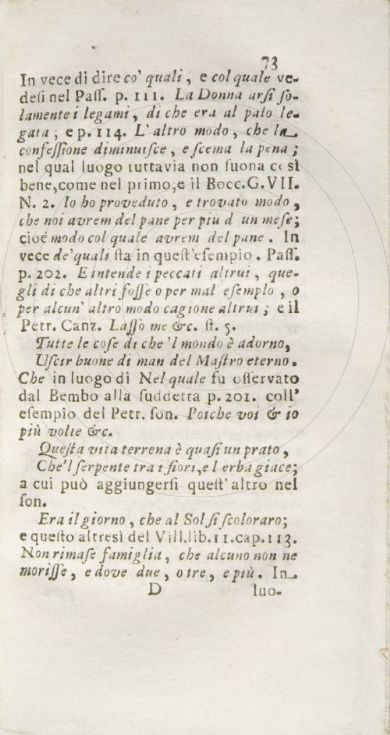 73
In vece di dire co' quali, e col quale ve-
deſi nel Paſſ. p. 111. La Donna arſi ſo-
lamente i legami, di che era al palo le-
gata; e p. 114. L'altro modo, che la
confeſſione diminuiſce, e ſcema la pena;
nel qual luogo tuttavia non ſuona co sì
bene, come nel primo, e il Bocc. G. VII.
N. 2. Io ho proveduto, e trovato modo,
che noi avrem del pane per piu d un meſe;
cioè modo col quale avrem del pane. In
vece de' quali ſta in queſt'eſempio. Paſſ.
p. 202. E intende i peccati altrui, que-
gli di che altri foſſe o per mal' eſemplo, o
per alcun' altro modo cagione altrui; e il
Petr. Canz. Laſſò me &c. ſt. 5.
Tutte le coſe di che 'l mondo è adorno,
Uſcir buone di man del Maſtro eterno.
Che in luogo di Nel quale fu oſſervato
dal Bembo alla ſuddetta p. 201. coll'
eſempio del Petr. ſon. Poiche voi & io
più volte &c.
Queſta vita terrena è quaſi un prato,
Che'l ſerpente tra i fiori, e l erba giace;
a cui può aggiungerſi queſt' altro nel
ſon.
Era il giorno, che al Sol ſi ſcoloraro;
e queſto altresì del Vill. lib. 11. cap. 113.
Non rimaſe famiglia, che alcuno non ne
moriſſe, e dove due, o tre, e più. In
D luo-